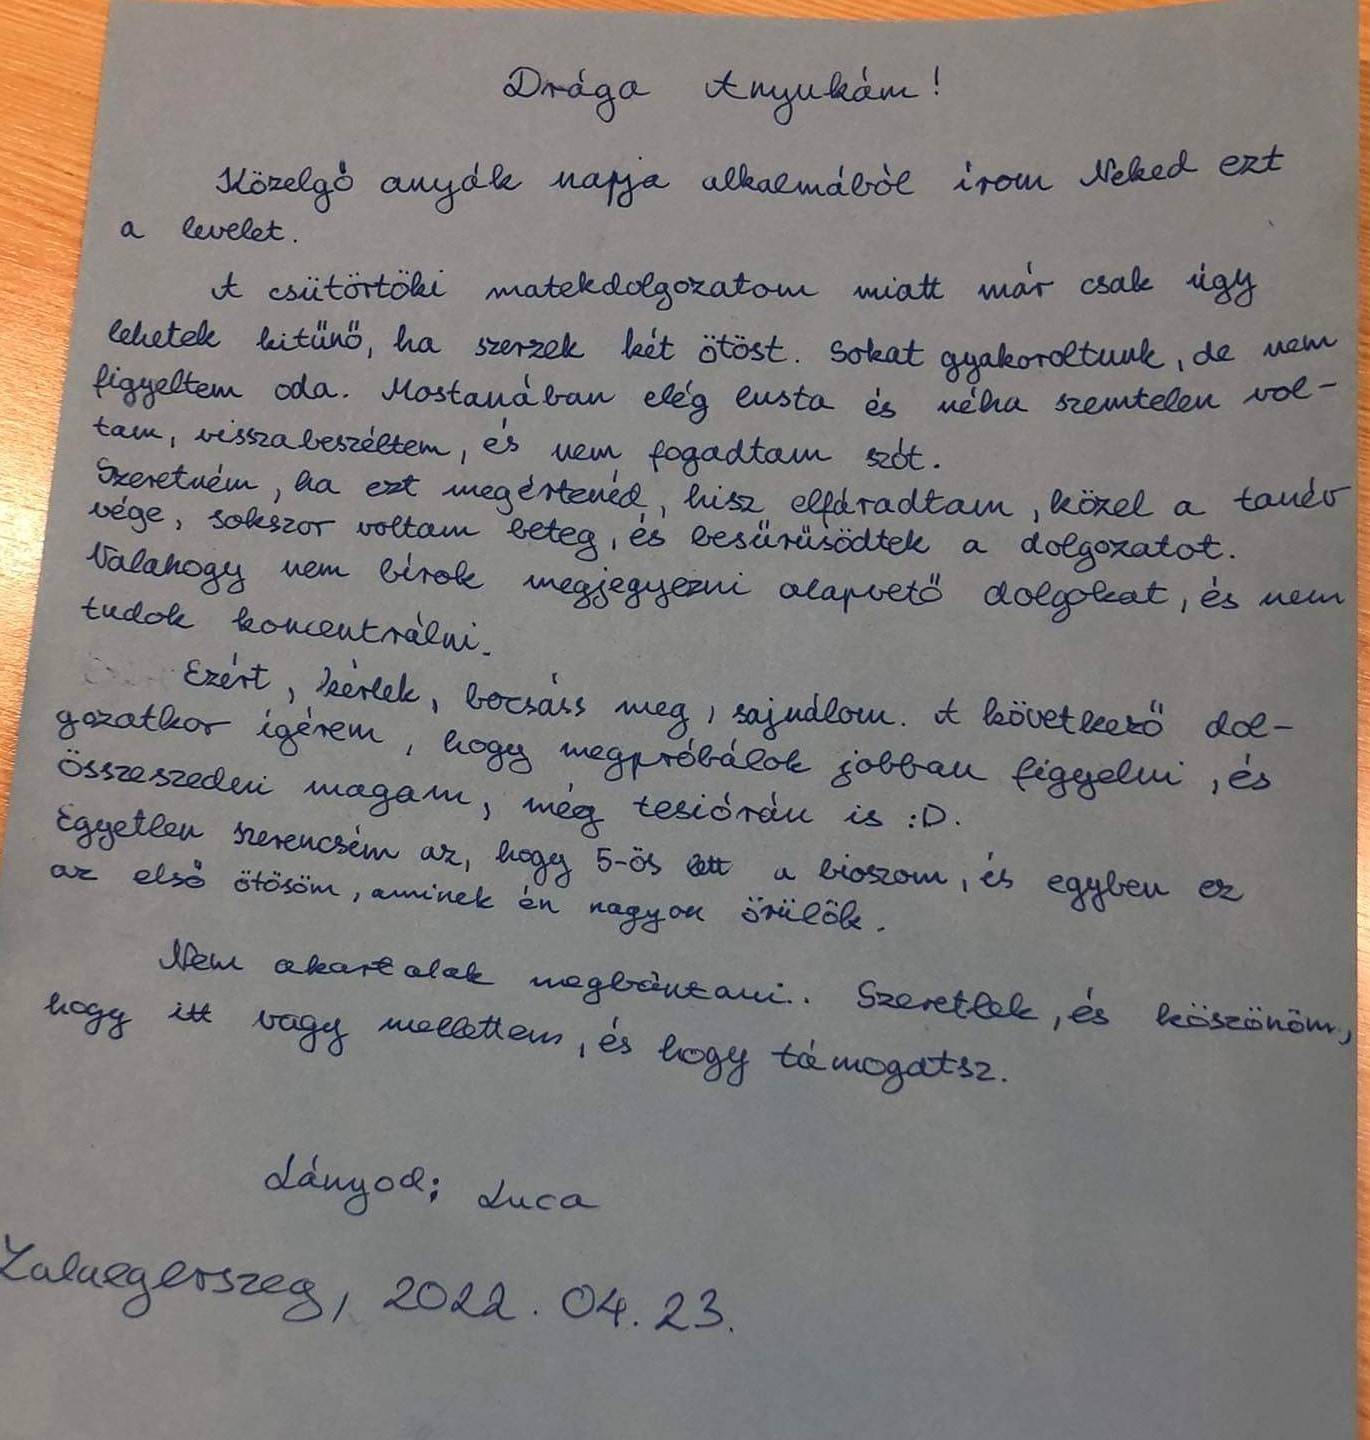 Drága Anyukám!
Közelgő anyák napja alkalmából írom Neked ezt
a levelet.
A csütörtöki matekdolgozatom miatt már csak úgy
lehetek kitűnő, ha szerzek két ötöst. Sokat gyakoroltunk, de nem
figyeltem oda. Mostanában elég lusta és néha szemtelen vol-
tam, visszabeszéltem, és nem fogadtam szót.
Szeretném, ha ezt megértenéd, hisz elfáradtam, közel a tanév
vége, sokszor voltam beteg, és besűrűsödtek a dolgozatot.
Valahogy nem bírok megjegyezni alapvető dolgokat, és nem
tudok koncentrálni.
Ezért, kérlek, bocsáss meg, sajnálom. A következő dol-
gozatkor ígérem, hogy megpróbálok jobban figyelni, és
összeszedni magam, még tesiórán is :D.
Egyetlen szerencsém az, hogy 5-ös lett a bioszom, és egyben ez
az első ötösöm, aminek én nagyon örülök.
Nem akartalak megbántani.. Szeretlek, és köszönöm,
hogy itt vagy mellettem, és hogy támogatsz.
Lányod; Luca
Zalaegerszeg, 2022. 04. 23.